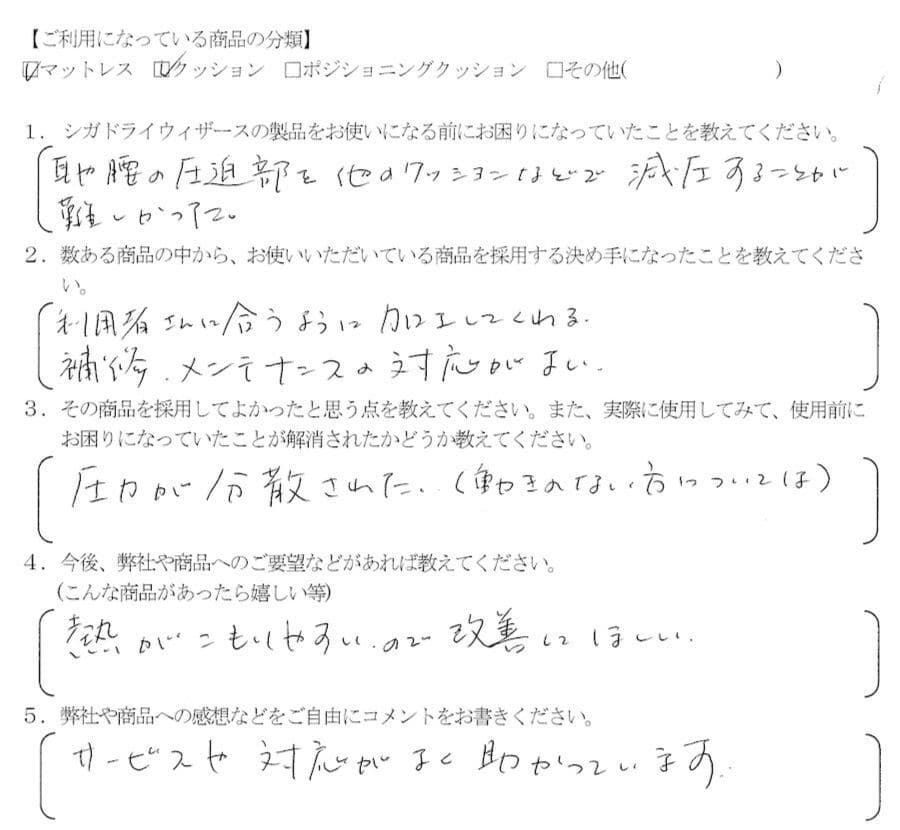 【ご利用になっている商品の分類】
☑マットレス ☑クッション □ポジショニングクッション □その他( )
1. シガドライウィザースの製品をお使いになる前にお困りになっていたことを教えてください。
耳や腰の圧迫部を他のクッションなどで 減圧することが
難しかった。
2. 数ある商品の中から、お使いいただいている商品を採用する決め手になったことを教えてくださ
い。
利用者さんに合うように加工してくれる.
補修、メンテナンスの対応がよい.
3. その商品を採用してよかったと思う点を教えてください。また、実際に使用してみて、使用前に
お困りになっていたことが解消されたかどうか教えてください。
圧力が分散された.(動きのない方については)
4. 今後、弊社や商品へのご要望などがあれば教えてください。
(こんな商品があったら嬉しい等)
熱がこもりやすい.ので改善してほしい.
5. 弊社や商品への感想などをご自由にコメントをお書きください。
サービスや対応がよく助かっています.